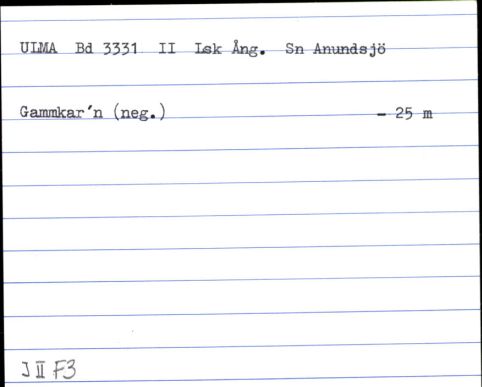 ULMA Bd 3331 II Lsk Ång. Sn Anundsjö
Gammkar'n (neg.) - 25 m
J II F3